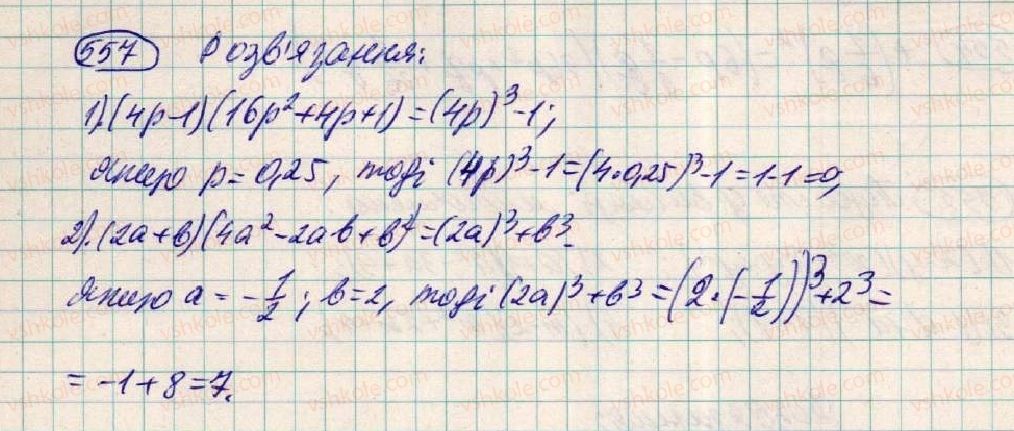 557 Розв'язання:
1).(4p-1)(16p²+4p+1)=(4p)³-1;
Якщо p=0,25, тоді (4p)³-1=(4·0,25)³-1=1-1=0;
2).(2a+b)(4a²-2ab+b²)=(2a)³+b³.
Якщо a = -1/2; b=2, тоді (2a)³+b³=(2·(-1/2))³+2³=
= -1+8=7.